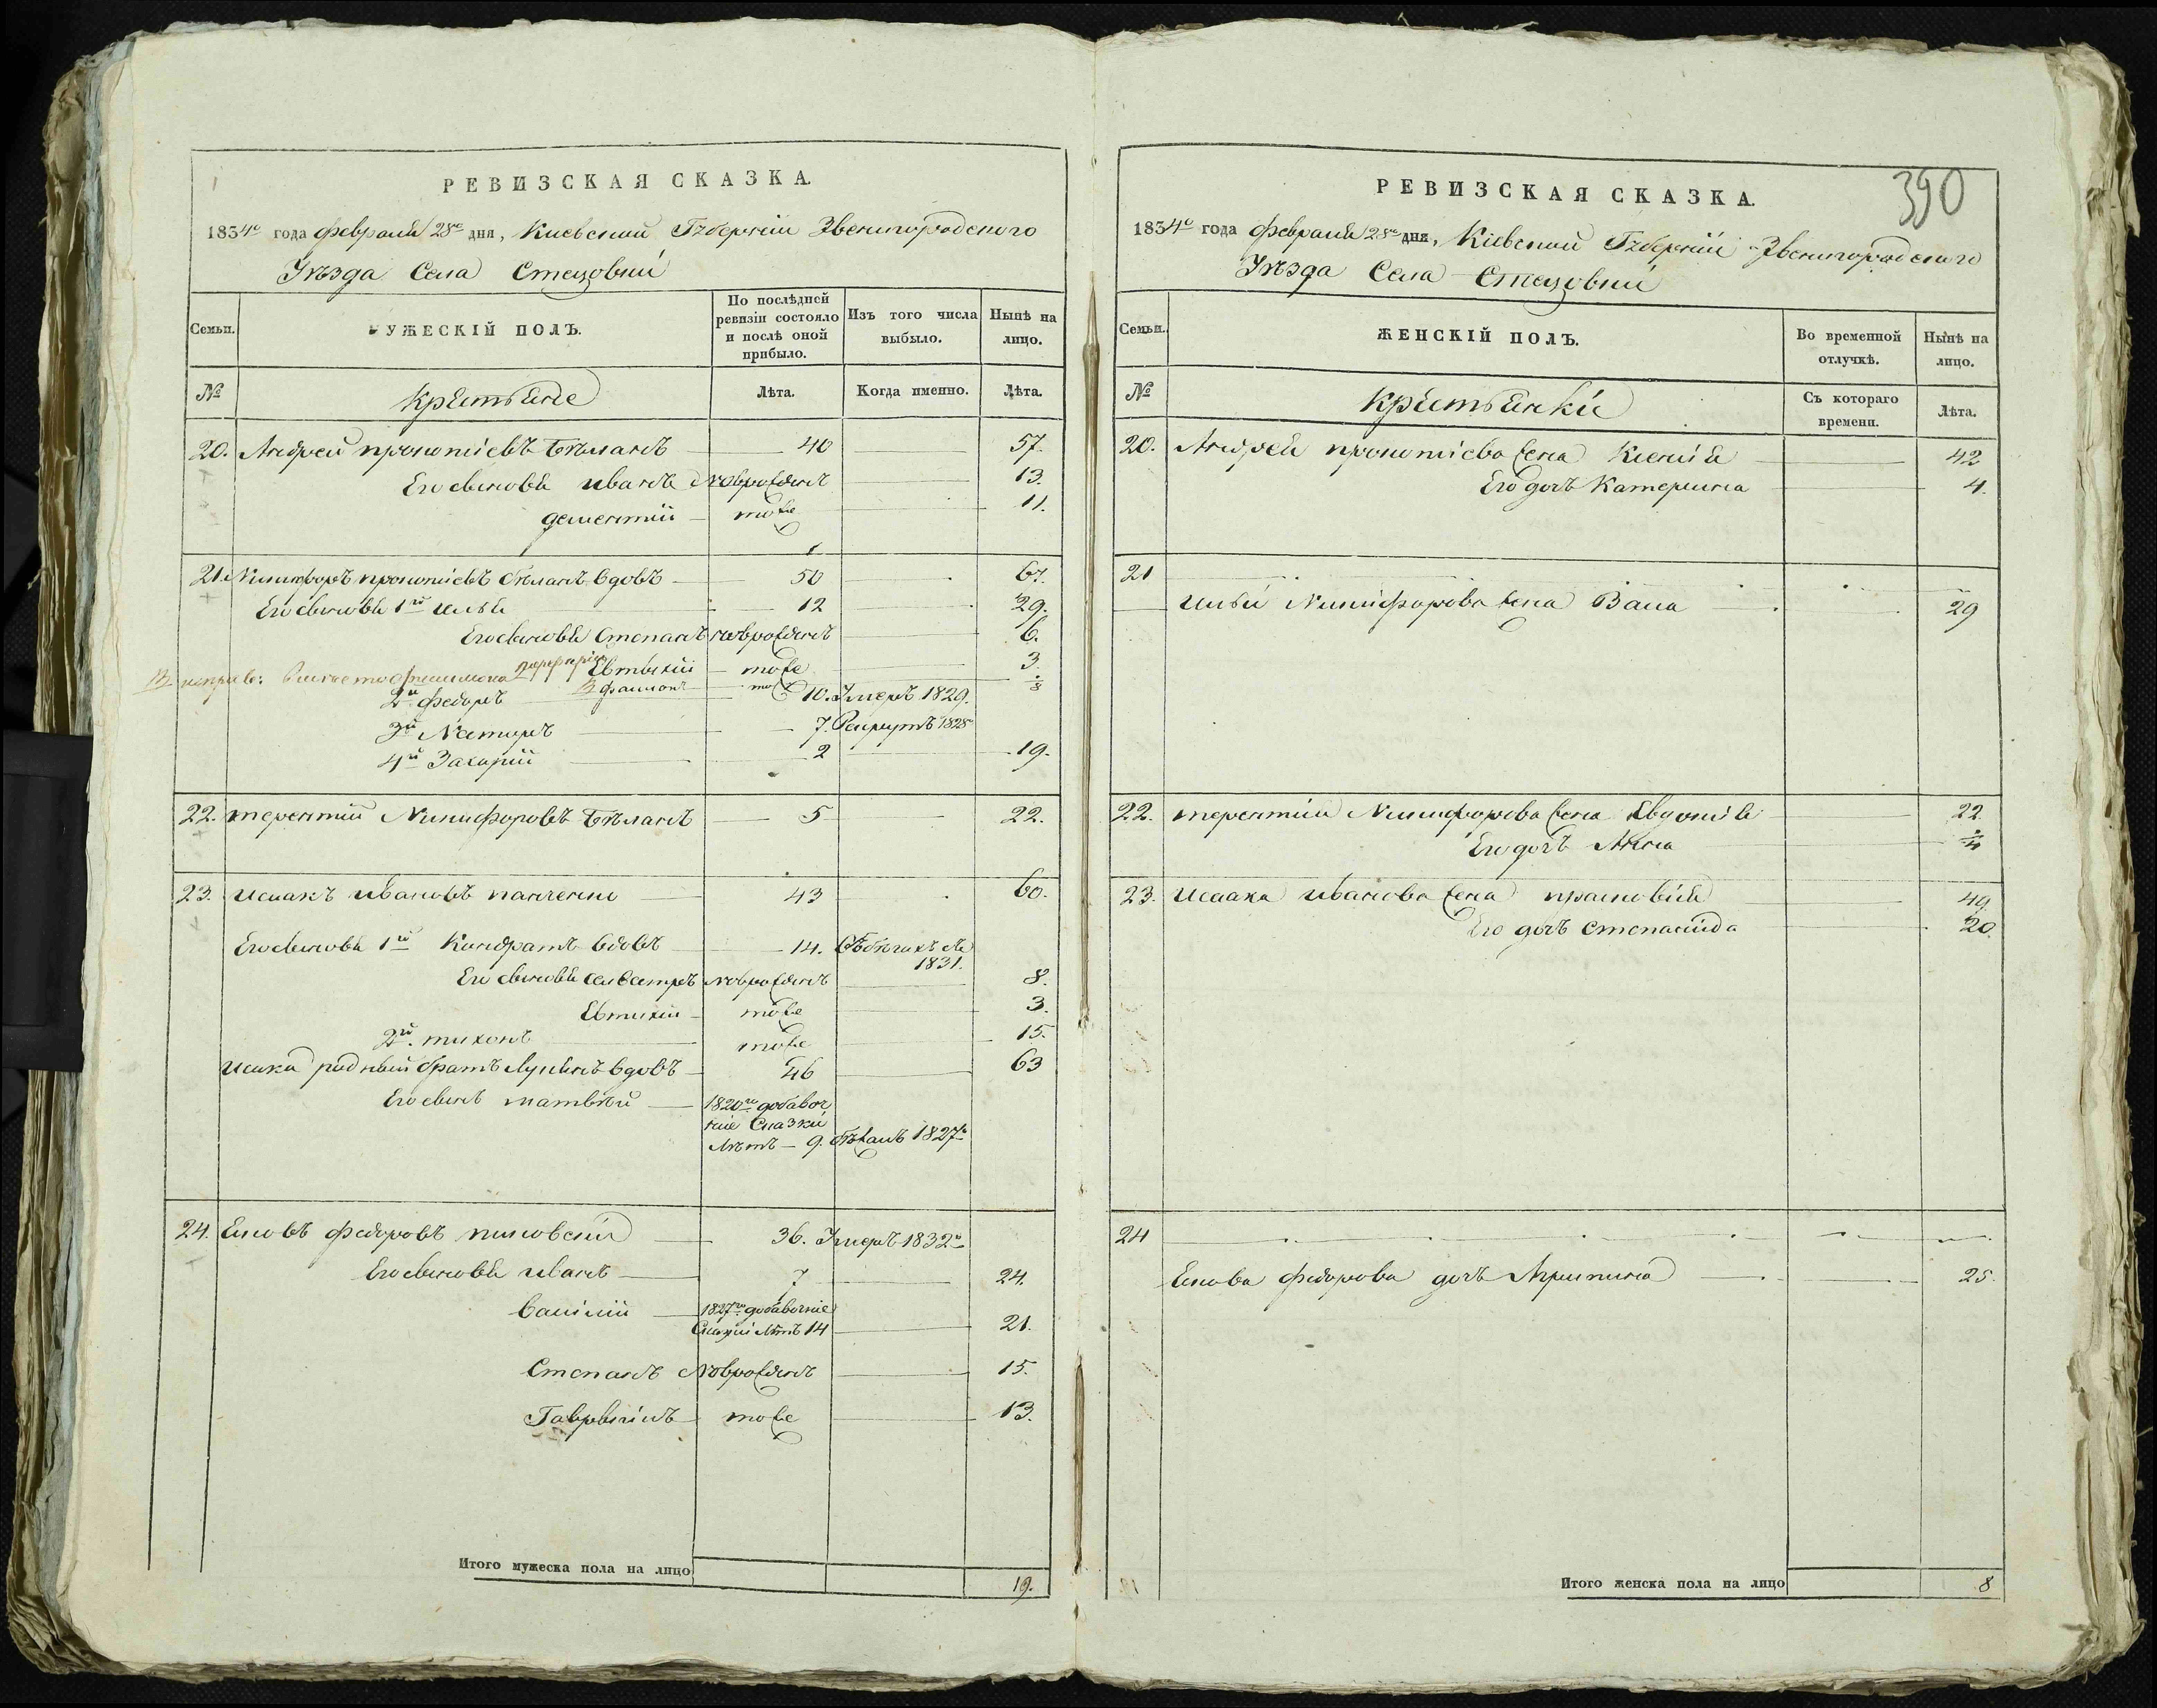 РЕВИЗСКАЯ СКАЗКА.
1834го года февраля 28го дня, Киевской Губернiи Звенигородского
Уѣзда Села Стецовки
Семьи.
МУЖЕСКIЙ ПОЛЪ.
По послѣдней ревизiи состояло и послѣ оной прибыло.
Изъ того числа выбыло.
Нынѣ на лицо.
№
Крѣстьяне
Лѣта.
Когда именно.
Лѣта.
20. Андрей прокопiевъ Бѣланъ 40 57.
Его сыновья иванъ Новрожденъ 13.
дементiй тоже 11.
21. Никифоръ прокопiевъ бѣланъ вдовъ 50 67.
Его сыновья 1й илья 12 29.
Его сыновья Степанъ новрожденъ 6.
Евтыхiй тоже 3.
2й федоръ 10. Умеръ 1829.
3й Несторъ 7. Рекрутъ 1828
4й Захарiй 2 19.
22. терентiй Никифоровъ Бѣланъ 5 22.
23. исаакъ ивановъ панченко 43 60.
Его сыновья 1й Кондратъ вдовъ 14. 1831.
Его сыновья селвестръ Новрожденъ 8.
Евтихiй тоже 3.
2й. тихонъ тоже 15.
исака родный братъ Лукянъ вдовъ 46 63
Его сынъ матвѣй 1820го добавоч
нiе Сказки
Лѣтъ — 9. бѣжалъ 1827го
24. Яковъ федоровъ 36. Умеръ 1832го
Его сыновья иванъ 7 24.
Василiй 1827го добавочнiе
Сказки Лѣтъ 14 21.
Степанъ Новрожденъ 15.
Гаврыiилъ тоже 13.
Итого мужеска пола на лицо 19.
390
РЕВИЗСКАЯ СКАЗКА.
1834го года февраля 28го дня, Кiевской Губернiи Звенигородского
Уѣзда Села Стецовки
Семьи.
ЖЕНСКIЙ ПОЛЪ.
Во временной отлучкѣ.
Нынѣ на лицо.
№
Крѣстьянкi
Съ котораго времени.
Лѣта.
20. Андрея прокопiева жена Ксенiя 42
Его дочъ Катерина 4.
21
ильи Никифорова жена Васа 29
22. терентiя Никифорова жена Евдокiя 22
Его дочъ Анна
23. исаака иванова жена прасковiя 49.
Его дочъ степанида 20.
24
Якова федорова дочъ Агрипина 25.
Итого женска пола на лицо 8